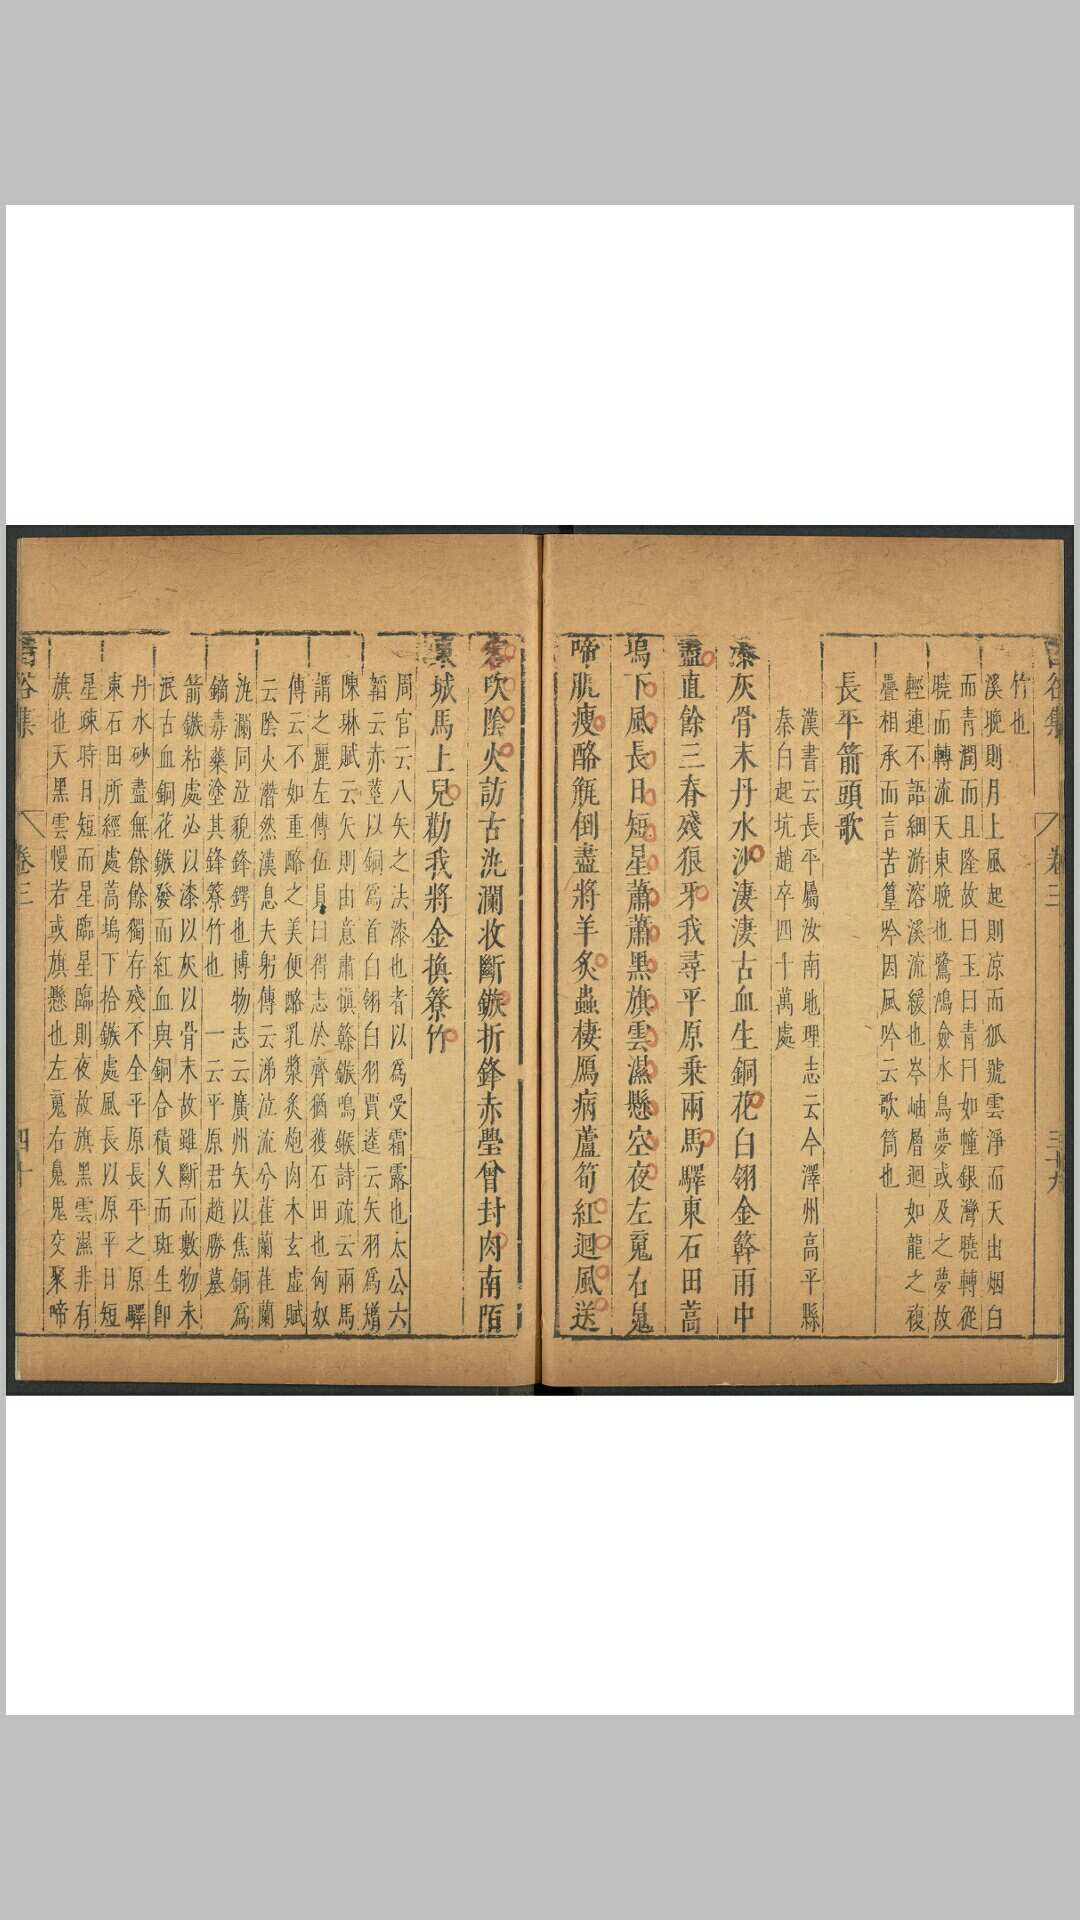 竹也
溪晚則月上風起則涼而狐號雲淨而天出烟白
而青潤而且隆故曰玉曰青曰如幢銀灣曉轉從
曉而轉流天東晚也鷺鴻僉水鳥夢或及之夢故
輕連不語細游溶溪流緩也岑岫層迴如龍之複
疊相承而言苦篁吟因風吟云歌筒也
長平箭頭歌
漢書云長平屬汝南地理志云今澤州高平縣
秦白起坑趙卒四十萬處
漆灰骨末丹水沙淒淒古血生銅花白翎金簳雨中
盡直餘三脊殘狼牙我尋平原乗兩馬驛東石田蒿
塢下風長日短星蕭蕭黑旗雲濕懸空夜左䰟右鬼
啼肌瘦酪甁倒盡將羊炙蟲棲鴈病蘆筍紅迴風送
客吹陰火訪古汍瀾收斷鏃折鋒赤璺曾刲肉南陌
東城馬上兒勸我將金換簝竹
周官云八矢之法漆也者以爲受霜露也太公六
韜云赤莖以銅爲首白翎白羽賈逵云矢羽爲矰
陳琳賦云矢則由意肅慎簳鏃鳴鍭詩疏云兩馬
謂之麗左傳伍員曰得志於齊猶獲石田也匈奴
傳云不如重酪之美便酪乳漿炙炮肉木玄虛賦
云陰火潛然漢息夫躬傳云涕泣流兮萑蘭萑蘭
汍瀾同泣貌鋒鍔也博物志云廣州矢以焦銅爲
鏑毒藥塗其鋒簝竹也 一云平原君趙勝墓
箭鏃粘處必以漆以灰以骨末故雖斷而數物未
泯古血銅花鏃發而紅血與銅合積久而斑生卽
丹水砂盡無餘餘獨存殘不全平原長平之原驛
東石田所經處蒿塢下拾鏃處風長以原平日短
星疎時日短而星臨星臨則夜故旗黑雲濕非有
旗也天黑雲慢若或旗懸也左䰟右䰟鬼交聚啼